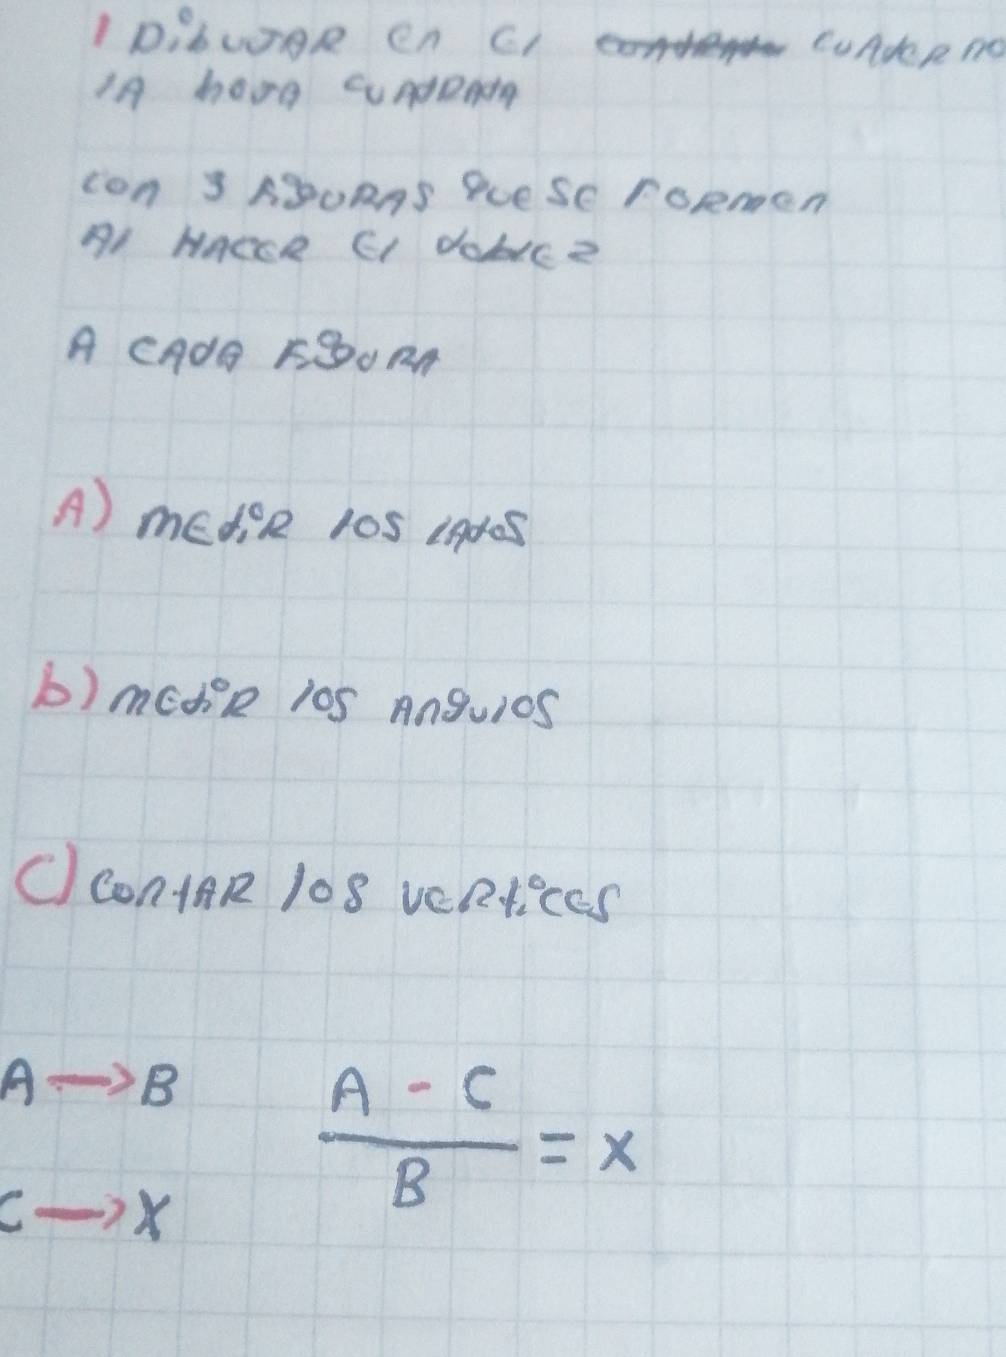 1 DibuJAR En El cuAdERno
lA hoJA cuAdRAdA
con 3 FiguRAS que SE FoRmEn
Al HACER El doblEz
A CAdA FiguRA
A) mEdiR los lAdoS
b) mEdiR los AnguloS
C) contAR los VERticES
A → B
C → X
A - C
B
= X